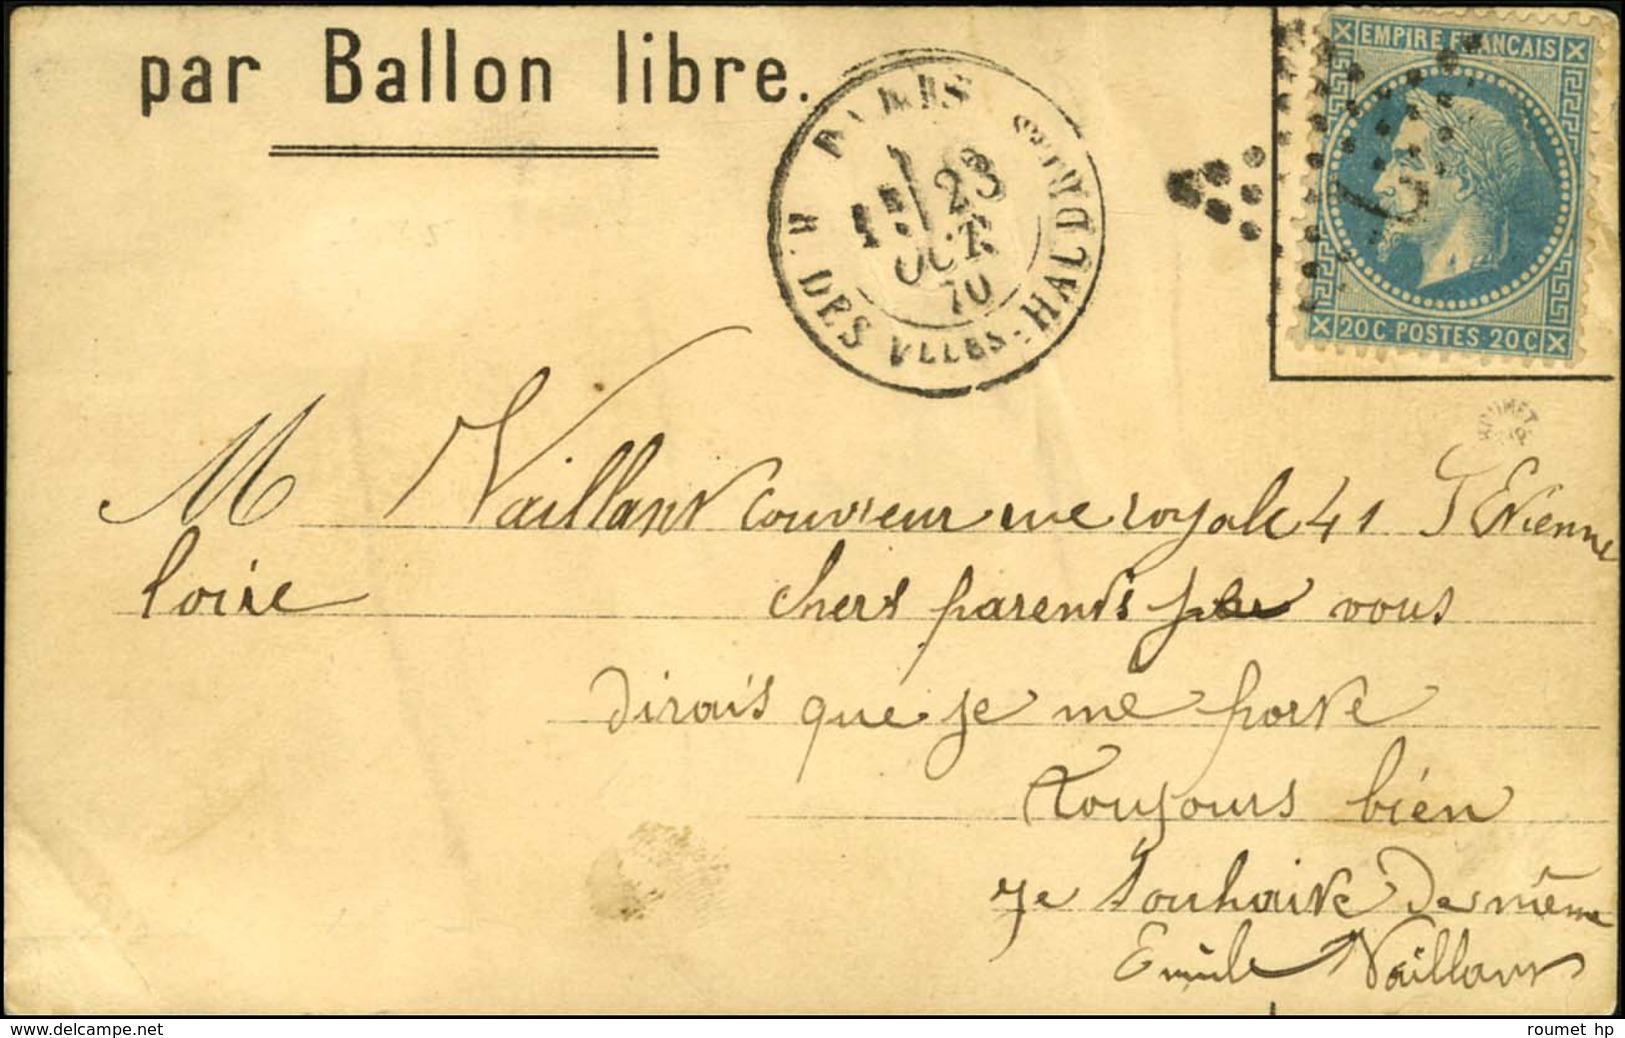 par Ballon libre.
PARIS
R. DES VLLES-HAUDRIETTES
5E 23
OCT.
70
EMPIRE FRANCAIS
20C POSTES 20C
ROUMET
M Vaillant couvreur rue royale 41 St Etienne
Loire chers parents je vous
dirais que je me porte
toujours bien
je souhaite de même
Emile Vaillant
roumet hp